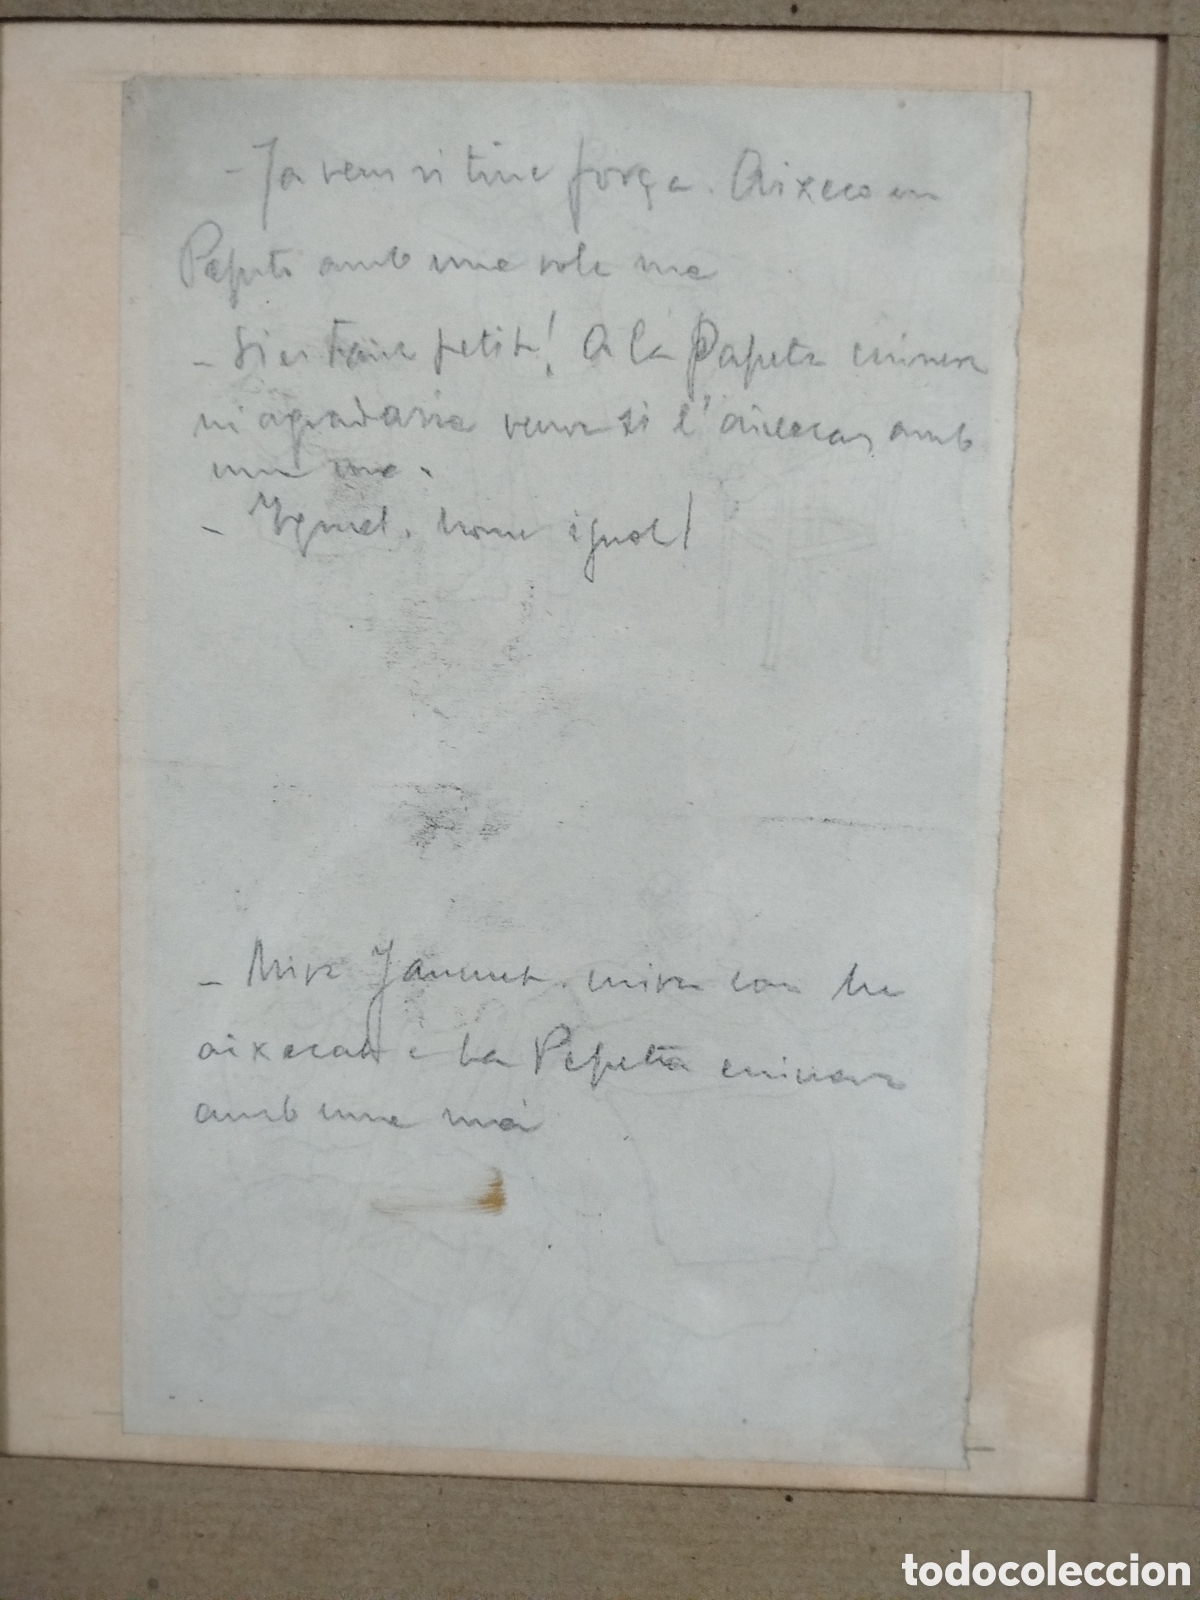 - Ja veus si tinc força. Aixeco en
Pepito amb una sola ma
- Si es tan petit! A la Papeta
m'agradaria veure si l'aixecas amb
una ma.
- Igual, home igual!
- Mira Jaumet, mira com he
aixecat a la Pepeta
amb una mà
todocoleccion